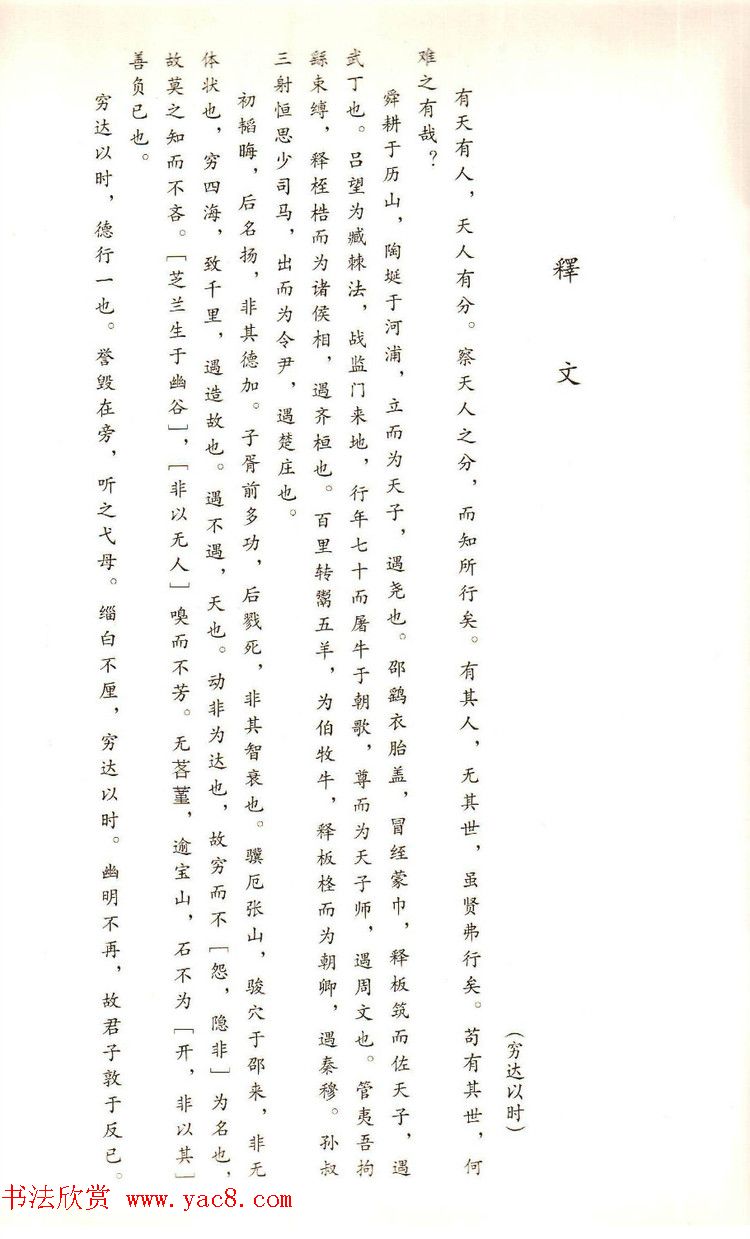 釋文
（穷达以时）
有天有人，天人有分。察天人之分，而知所行矣。有其人，无其世，虽贤弗行矣。苟有其世，何
难之有哉？
舜耕于历山，陶埏于河浦，立而为天子，遇尧也。邵鹞衣胎盖，冒绖蒙巾，释板筑而佐天子，遇
武丁也。吕望为臧棘法，战监门来地，行年七十而屠牛于朝歌，尊而为天子师，遇周文也。管夷吾拘
繇束缚，释桎梏而为诸侯相，遇齐桓也。百里转鬻五羊，为伯牧牛，释板栓而为朝卿，遇秦穆。孙叔
三射恒思少司马，出而为令尹，遇楚庄也。
初韬晦，后名扬，非其德加。子胥前多功，后戮死，非其智衰也。骥厄张山，骏穴于邵来，非无
体状也，穷四海，致千里，遇造故也。遇不遇，天也。动非为达也，故穷而不［怨，隐非］为名也，
故莫之知而不吝。［芝兰生于幽谷］，［非以无人］嗅而不芳。无茖堇，逾宝山，石不为［开，非以其］
善负已也。
穷达以时，德行一也。誉毁在旁，听之弋母。缁白不厘，穷达以时。幽明不再，故君子敦于反已。
书法欣赏 www.yac8.com